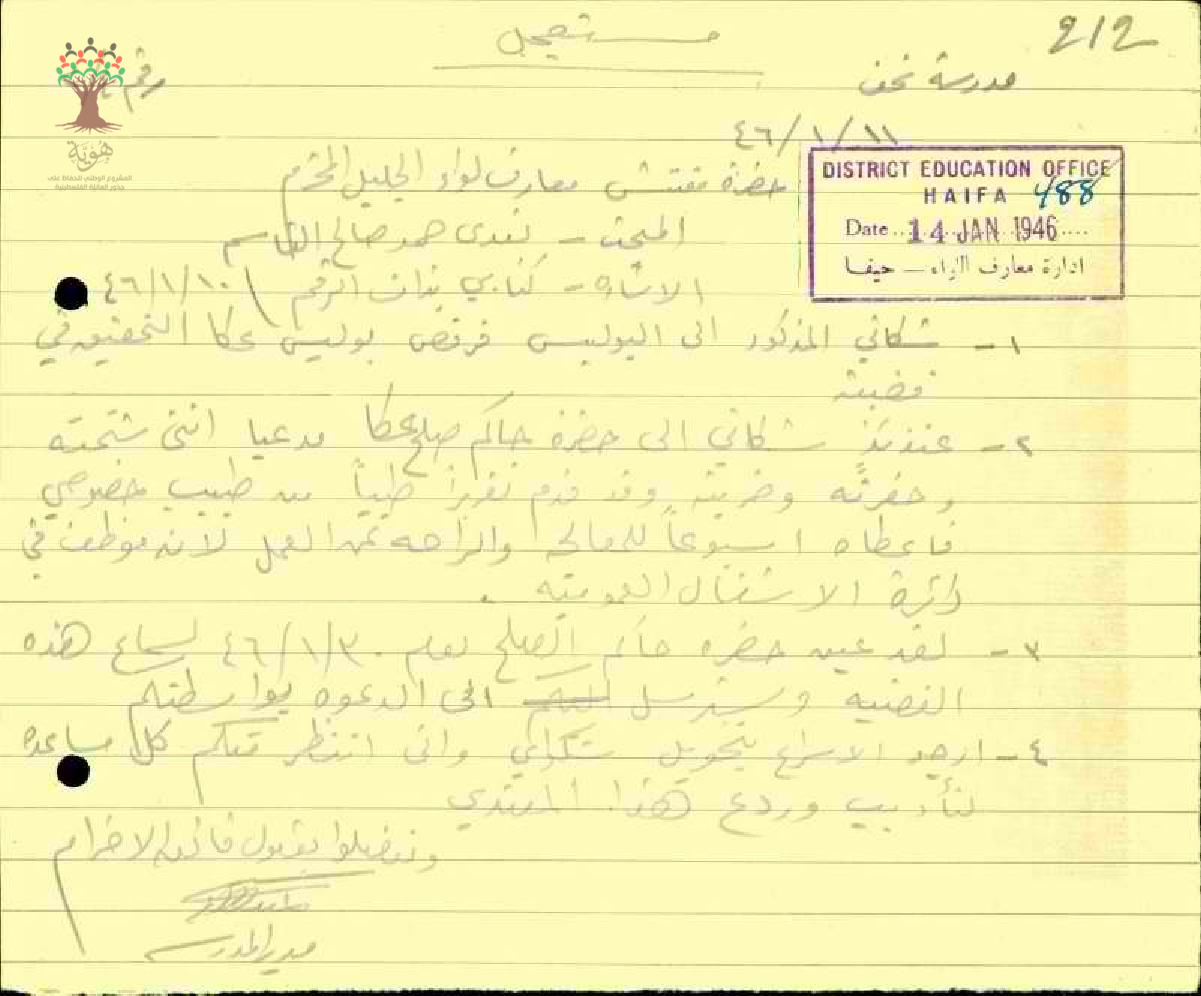 مستعجل
212
مدرسة نحف
رقم
٤٦/١/١١
DISTRICT EDUCATION OFFICE
HAIFA 488
Date 14 JAN 1946
ادارة معارف اللواء — حيفا
هوية
المشروع الوطني للحفاظ على
جذور العائلة الفلسطينية
حضرة مفتش معارف لواء الجليل المحترم
المبحث - تعدي حمد صالح القاسم
الاشارة - كتابي بذات الرقم ٤٦/١/١٠
١- شكاني المذكور الى البوليس فرفض بوليس عكا التحقيق في
قضيته
٢- عندئذ شكاني الى حضرة حاكم صلح عكا مدعيا انني شتمته
وحقرته وضربته وقد قدم تقريرا طبياً من طبيب خصوصي
فاعطاه اسبوعاً للمعالجة والراحه عن العمل لانه موظف في
دائرة الاشغال العموميه .
٣- لقد عين حضرة حاكم الصلح يوم ٤٦/١/٣٠ لسماع هذه
القضيه وسيرسل الى الدعوه بواسطتكم
٤- ارجو الاسراع بتحويل شكواي وانى انتظر منكم كل مساعده
لتأديب وردع هذا المعتدي
وتفضلوا بقبول فائق الاحترام
مدير المدرسه